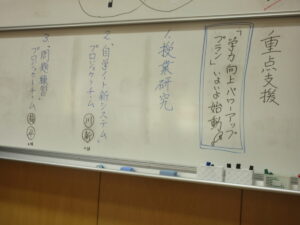 重点支援
「学力向上パワーアップ
プラン」いよいよ始動
1. 授業研究
2. 自学イト新システム
プロジェクトチーム
3. 問題練習
プロジェクトチーム